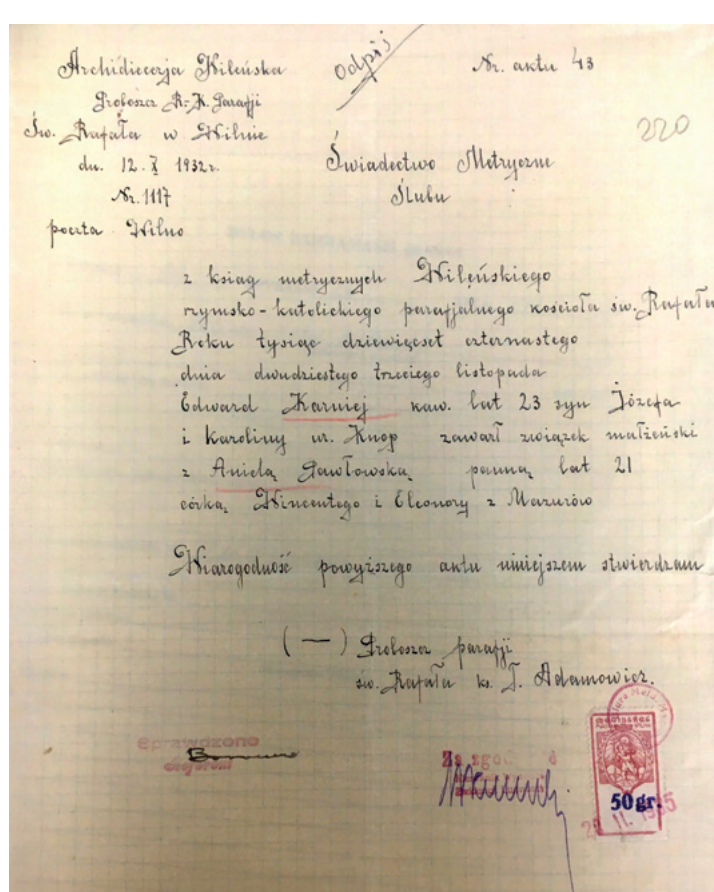 odpis
Archidiecezja Wileńska
Nr. aktu 43
Proboszcz R.-K. Parafji
Św. Rafała w Wilnie
220
dn. 12. X 1932 r.
Świadectwo Metryczne
Nr. 1117
Ślubu
poczta Wilno
z ksiąg metrycznych Wileńskiego
rzymsko-katolickiego parafjalnego kościoła św. Rafała
Roku tysiąc dziewięćset czternastego
dnia dwudziestego trzeciego listopada
Edward Karniej kaw. lat 23 syn Józefa
i Karoliny ur. Knop zawarł związek małżeński
z Anielą Gawłowską panną lat 21
córką Wincentego i Eleonory z Mazurów
Wiarogodność powyższego aktu niniejszem stwierdzam
(—) Proboszcz parafji
św. Rafała ks. J. Adamowicz.
Sprawdzono
Za zgod
50 gr.